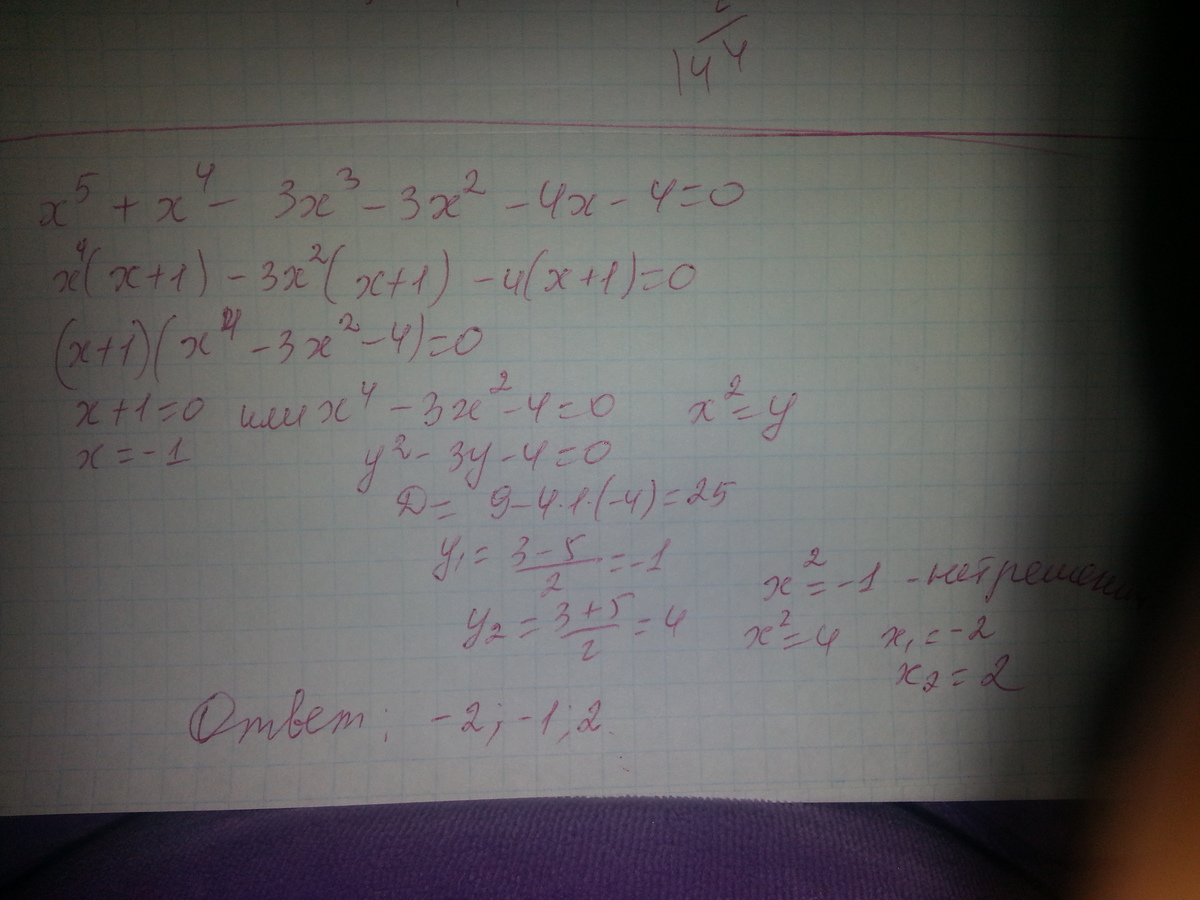 144
x⁵ + x⁴ - 3x³ - 3x² - 4x - 4 = 0
x⁴(x+1) - 3x²(x+1) - 4(x+1) = 0
(x+1)(x⁴ - 3x² - 4) = 0
x+1=0 или x⁴ - 3x² - 4 = 0 x² = y
x = -1 y² - 3y - 4 = 0
D = 9 - 4·1·(-4) = 25
y₁ = (3-5)/2 = -1 x² = -1 - нет
y₂ = (3+5)/2 = 4 x² = 4 x₁ = -2
x₂ = 2
Ответ: -2; -1; 2.